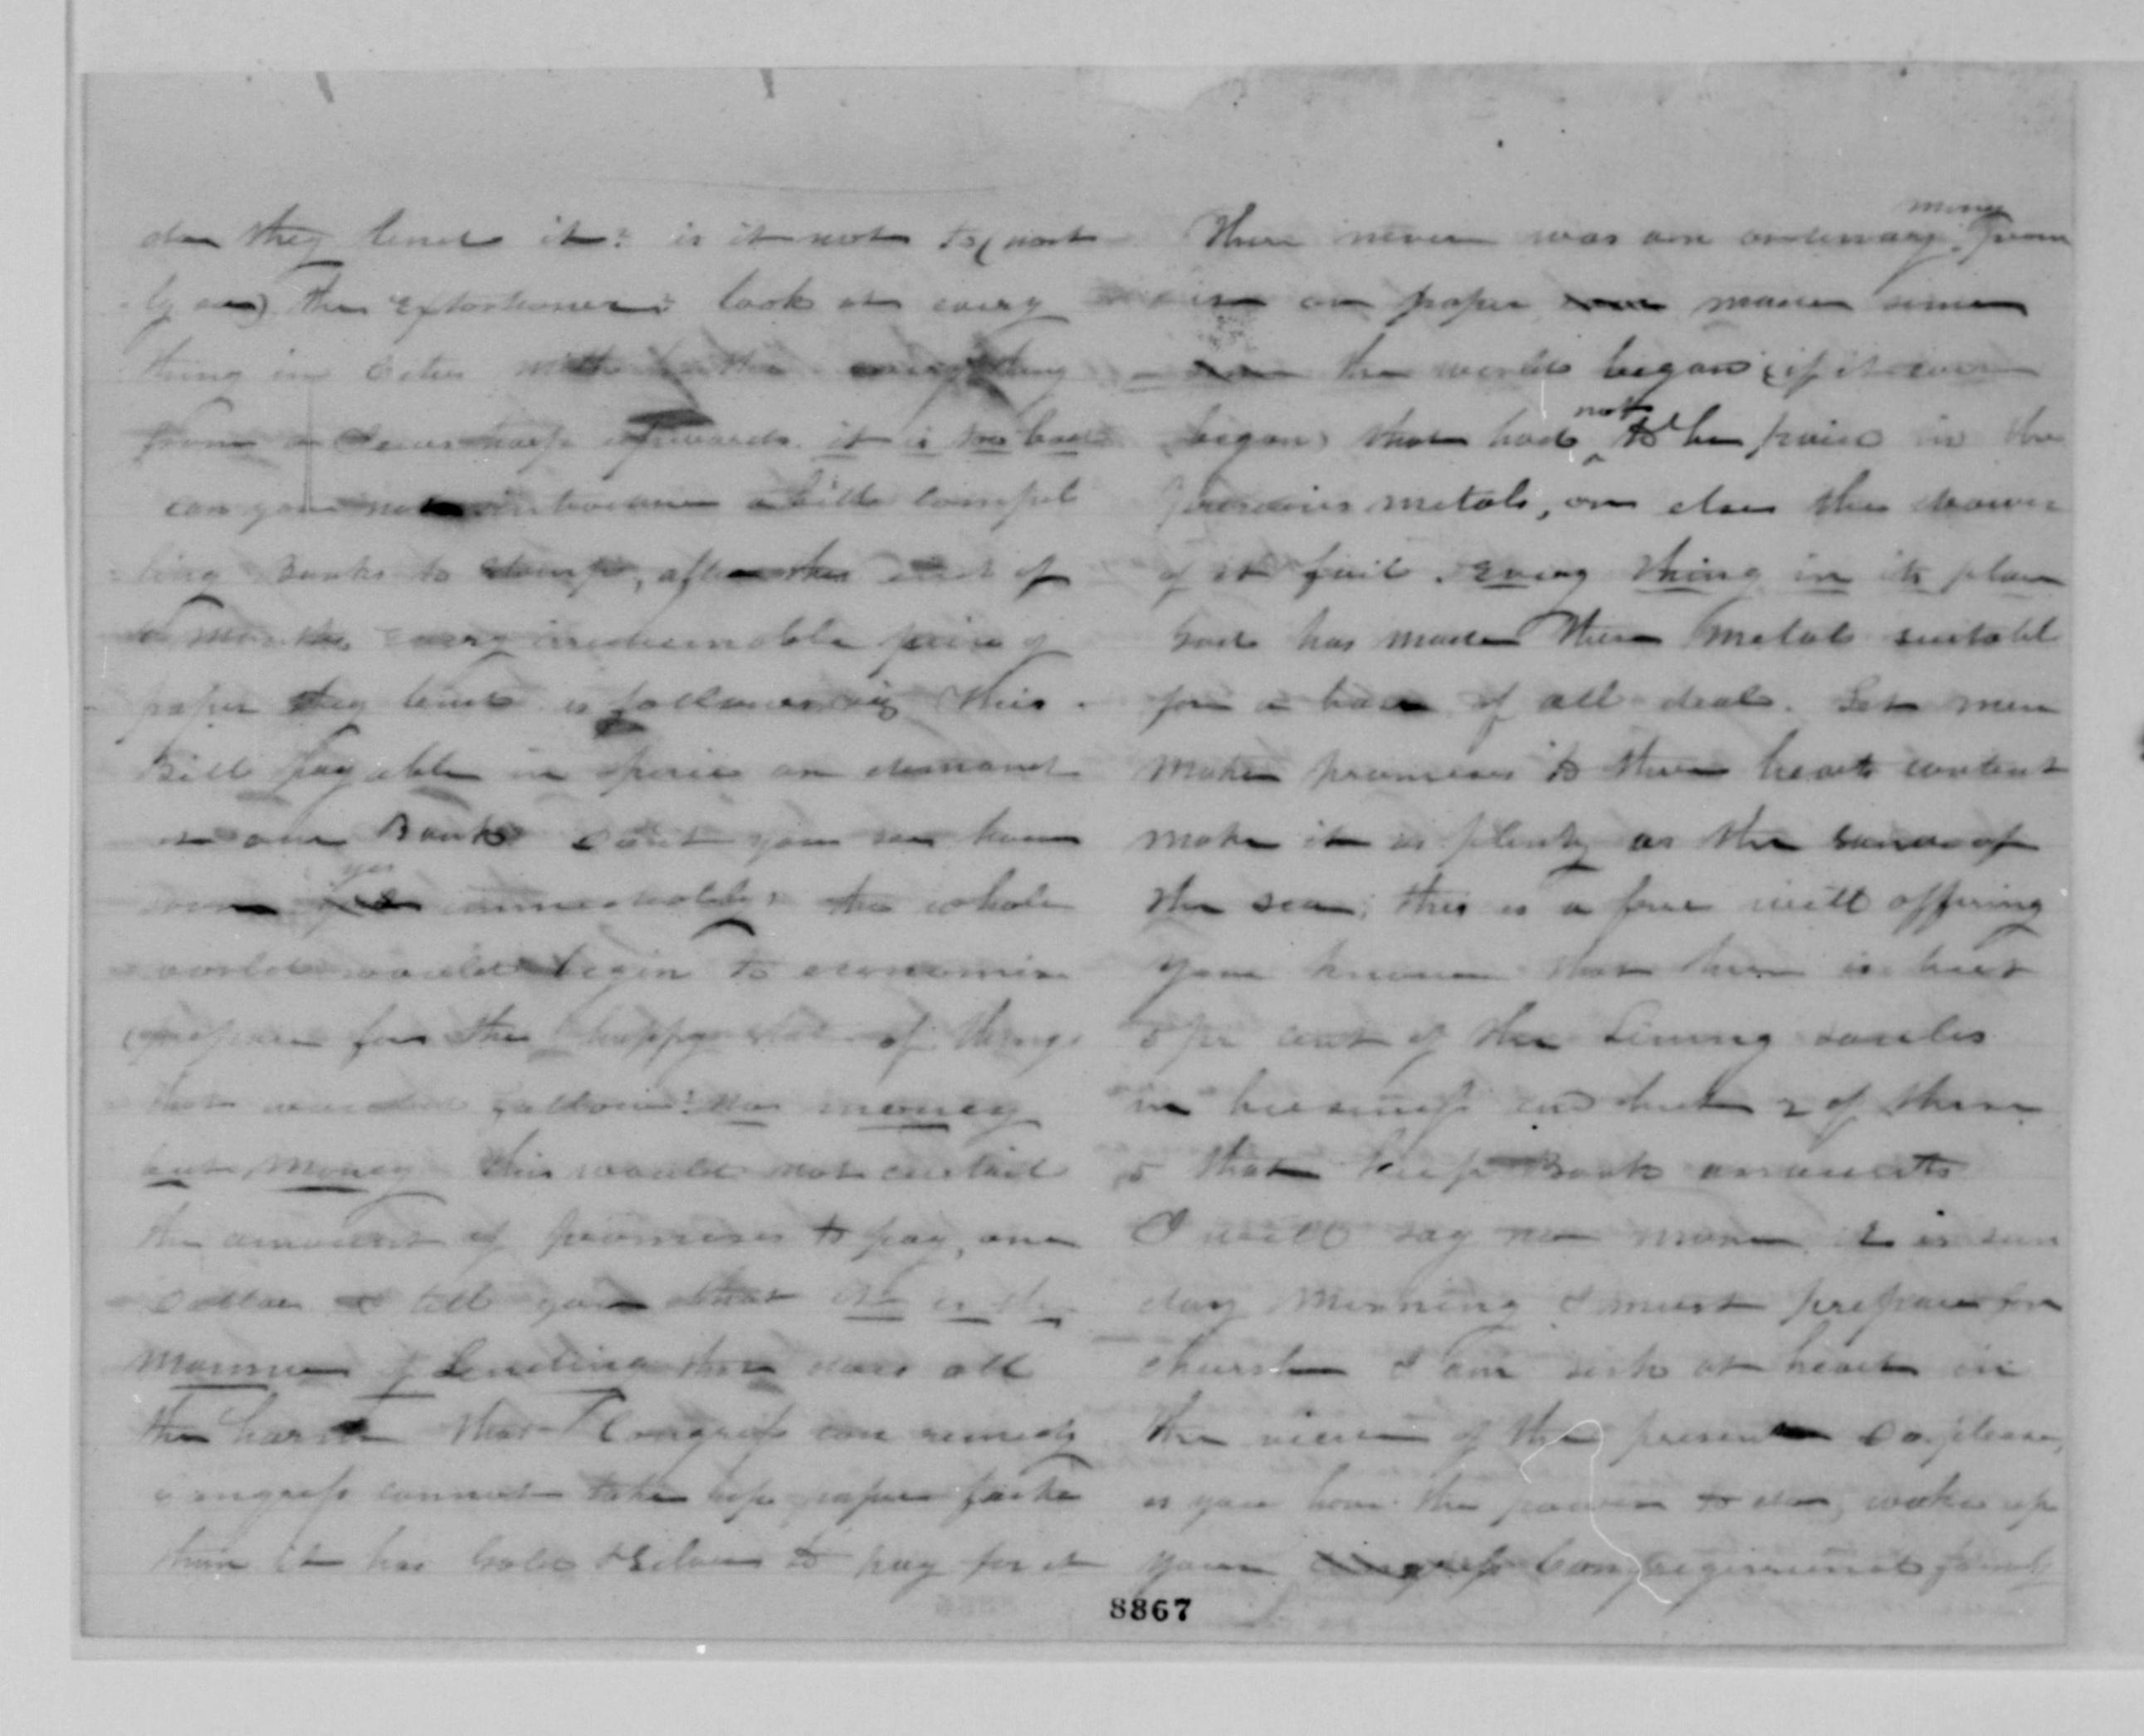 do they lend it? is it not to (most
ly so) the Extortioner? look at every
thing in Cities
from a Jews harp upwards. it is too bad
can you not introduce a bill compel
ling Banks to stamp, after the end of
months every irredeemable piece of
paper they lend as follows viz This
Bill payable in specie on demand
at our Bank Dont you see how
soon yes immediately the whole
world would begin to economise
& prepare for the happy state of things
that would follow: no money
but money this would not curtail
the amount of promises to pay, one
Dollar I tell you that it is the
manner of lending that does all
the harm that Congress can remedy
Congress cannot take up paper faster
than it has Gold & Silver to pay for it
There never was an ordinary money prom
ise on paper made since
the world began (if it ever
began) that had not to be paid in the
precious metals, or else the drawer
of it fail. Every thing in its place
God has made these metals suitable
for a base of all deal. Let men
make promises to their hearts content
make it as plenty as the sand of
the sea; this is a free will offering
you know that there is but
5 per cent of the Living souls
in business and but 2 of these
5 that keep Bank accounts
I will say no more. it is sun
day morning I must prepare for
church I am sick at heart in
the view of the present Do please,
as you have the power to do, wake up
your Congress Congregational family
8867